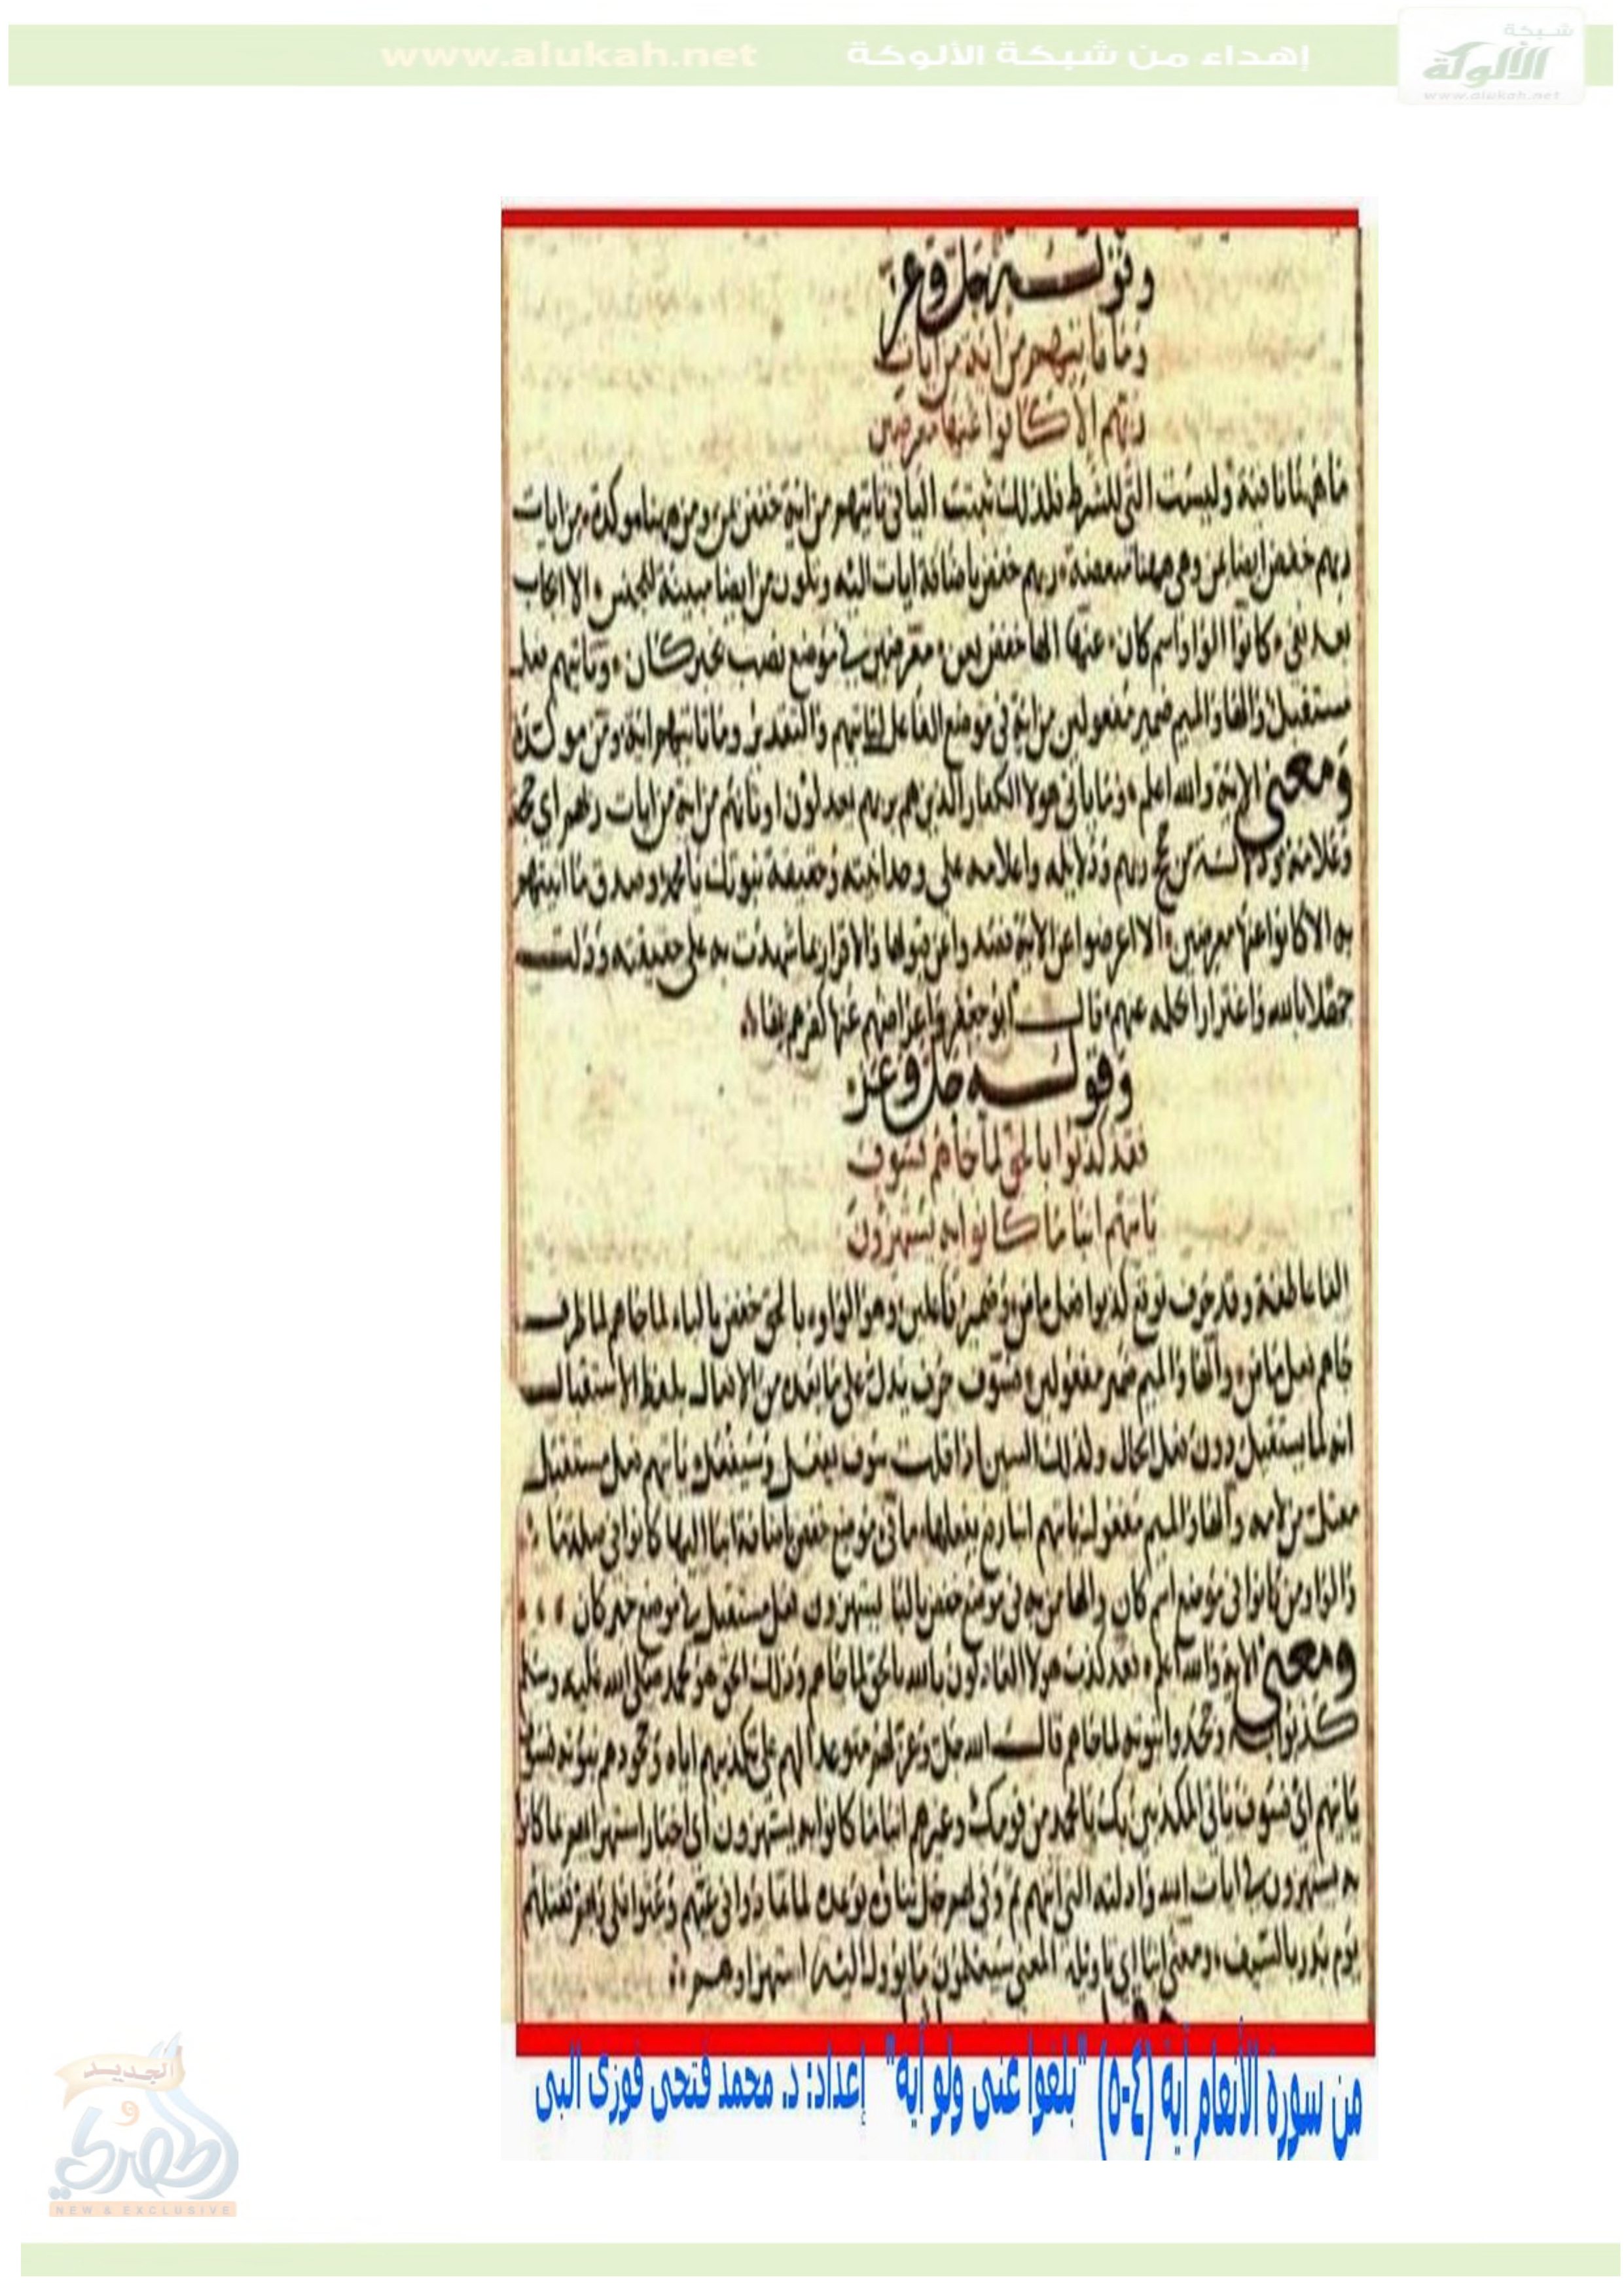 شبكة
الألوكة
www.alukah.net
إهداء من شبكة الألوكة www.alukah.net
وقوله جل وعز
وما تاتيهم من اية من ايات
ربهم الا كانوا عنها معرضين
ما ههنا نافية وليست التي للشرط فلذلك ثبتت اليا في تاتيهم من اية خفض بمن ومن ههنا موكدة من ايات
ربهم خفض ايضا بمن وهي ههنا مبعضة ربهم خفض باضافة ايات اليه وتكون من ايضا مبينة للجنس الا ايجاب
بعد نفي كانوا الواو اسم كان عنها الها خفض بعن معرضين في موضع نصب بخبر كان وتاتيهم فعل
مستقبل والها والميم ضمير مفعولين من اية في موضع الفاعل لتاتيهم والتقدير وما تاتيهم اية ومن موكدة
ومعنى الاية والله اعلم وما ياتي هولا الكفار الذين هم بربهم يعدلون اوثانهم من اية من ايات ربهم اي حجة
وعلامة ودلالة من حجج ربهم ودلايله واعلامه على وحدانيته وحقيقة نبوتك يا محمد وصدق ما اتيتهم
به الا كانوا عنها معرضين الا اعرضوا عن الاية فصدوا عن قبولها والاقرار بما شهدت به على حقيقته ودلت
جهلا بالله واغترارا بحلمه عنهم قال ابو جعفر واعراضهم عنها كفرهم بها
وقوله جل وعز
فقد كذبوا بالحق لما جاهم فسوف
ياتيهم انبا ما كانوا به يستهزون
الفا عاطفة وقد حرف توقع كذبوا فعل ماض وضمير فاعلين وهو الواو بالحق خفض بالباء لما جاهم لما ظرف
جاهم فعل ماض والها والميم ضمير مفعولين فسوف حرف يدل على ما بعده من الافعال بلفظ الاستقبال
انه لما يستقبل دون فعل الحال وكذلك السين اذا قلت سوف يفعل وسيفعل ياتيهم فعل مستقبل
معتل من لامه والها والميم مفعول ياتيهم انبا رفع بفعلها ما في موضع خفض باضافة انبا اليها كانوا في صلة ما
والواو من كانوا في موضع اسم كان والها من به في موضع خفض بالبا يستهزون فعل مستقبل في موضع خبر كان
ومعنى الاية والله اعلم فقد كذب هولا العادلون بالله بالحق لما جاهم وذلك الحق هو محمد صلى الله عليه وسلم
كذبوا به وجحدوا نبوته لما جاهم قال الله جل وعز لهم متوعدا لهم على تكذيبهم اياه وجحودهم نبوته فسوف
ياتيهم اي فسوف ياتي المكذبين بك يا محمد من قومك وغيرهم انبا ما كانوا به يستهزون اي اخبار استهزايهم بما كانوا
به يستهزون من ايات الله وادلته التي اتيتهم ثم وفى لهم جل ثناوه بوعده لما تمادوا في غيهم وعتوا على ربهم فقتلهم
يوم بدر بالسيف ومعنى انبا اي تاويله المعنى سيعلمون ما يوول اليه استهزاوهم
من سورة الأنعام آية (٤-٥) "بلغوا عنى ولو آية" إعداد: د. محمد فتحى فوزى البى
الجديد
و
الحصري
NEW & EXCLUSIVE